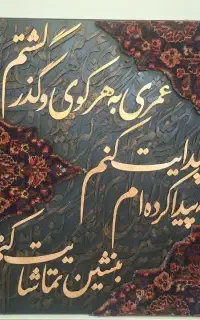 عمری به هر کوی و گذر گشتم
پیدایت کنم
پیدا کرده ام
بنشین تماشایت کنم